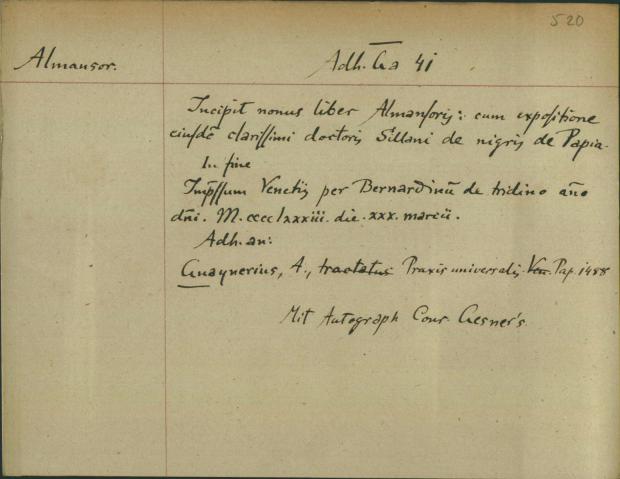 520
Almansor.
Adh. Ga 41
Incipit nonus liber Almansoris: cum expositione
eiusdē clarissimi doctoris Sillani de nigris de Papia.
In fine
Impssum Venetijs per Bernardinū de tridino año
dñi. M.cccclxxxiii. die.xxx. marcii.
Adh. an:
Guaynerius, A., tractatus Praxis universalis. Ven. Pap. 1488
Mit Autograph Conr. Gesner's.